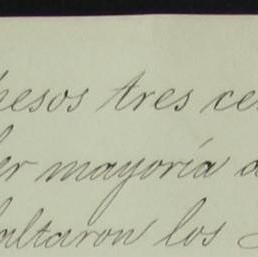 pesos tres ce
er mayoría d
altaron los